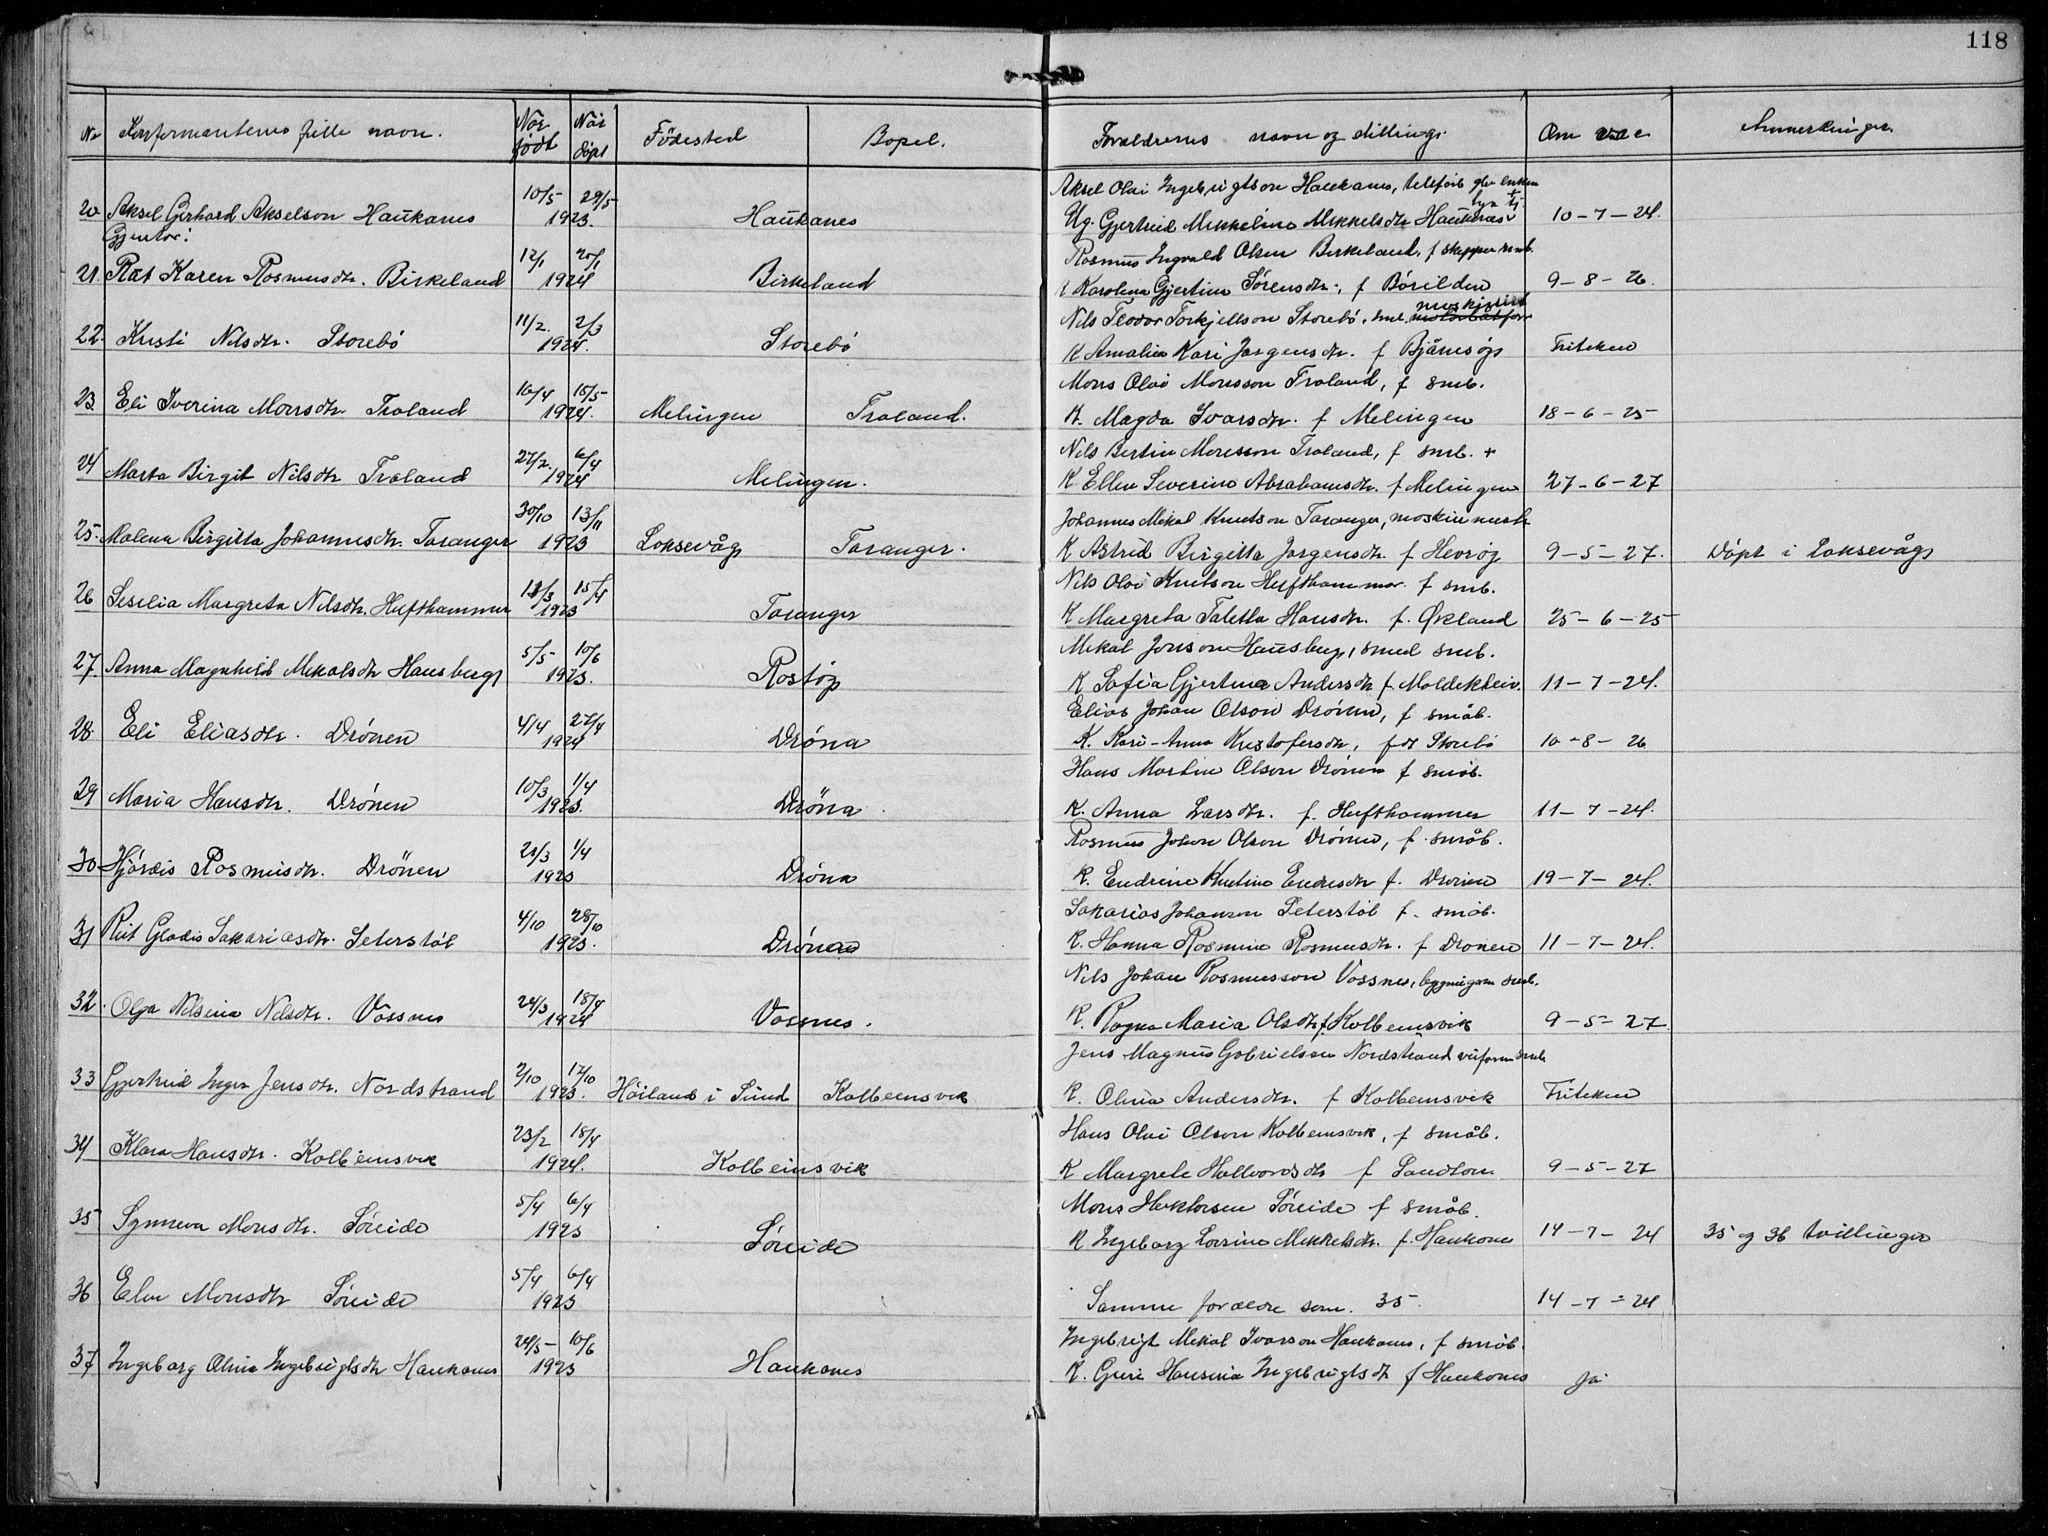 118
No Konfirmantens fulle navn. Når født Når døpt Födested Bopel. Foreldrenes navn og stilling. Om vac. Anmerkninger.
Aksel Olai Ingebrigtson Haukanes,
20 Aksel Gerhard Akselson Haukanes 10/5 29/5 1923. Haukanes Ug. Gjertrud Mikkeline Mikkelsdtr Haukanes 10-7-24.
Gjentor:
Rasmus Ingvald Olsen Birkeland, f skipper smb.
21. Rut Karen Rasmusdtr. Birkeland 12/1 20/1 1924 Birkeland K Karolina Gjertine Sørensdtr., f Børilden 9-8-26.
Nils Teodor Torkjellson Storebö, smb, maskinist
22. Kristi Nilsdtr. Storebö 11/2. 2/3 1924. Storebö K Amalia Kari Jørgensdtr. f Bjånesøy Friteken
Mons Olai Monsson Troland, f smb.
23. Eli Iverina Monsdtr Troland 16/4 18/5 1924. Melingen Troland. K. Magda Ivarsdtr. f Melingen 18-6-25
Nils Bertin Monsson Troland, f smb. +
24 Marta Birgit Nilsdtr Troland 27/2. 6/4 1924 Melingen. K Ellen Severine Abrahamsdtr. f Melingen 27-6-27
Johannes Mikal Knutson Taranger,
25. Malena Birgitta Johannesdtr. Taranger 30/10 13/11 1923 Loksevåg Taranger. K Astrid Birgitta Jørgensdtr. f Hevrøy 9-5-27. Döpt i Loksevåg
Nils Olai Knutson Hufthammar. f smb.
26 Sesilia Margreta Nilsdtr. Hufthammer 11/3 15/4 1923 Taranger K Margreta Taletta Hansdtr. f. Økland 25-6-25
Mikal Jonson Hausberg, smed smb.
27. Anna Magnhild Mikalsdtr Hausberg 5/5 10/6 1923. Rostöy K Sofia Gjertina Andersdtr f. Moldekleiv. 11-7-24.
Elias Johan Olson Drönen, f småb.
28. Eli Eliasdtr. Drönen 4/4 27/4 1924 Dröna K. Kari-Anna Kristofersdtr, født Storebö 10-8-26
Hans Martin Olson Drönen f småb.
29 Maria Hansdtr. Drönen 10/3 1/4 1923. Dröna K. Anna Larsdtr. f. Hufthammer 11-7-24.
Rasmus Johan Olson Drönen, f. småb.
30 Hjørdis Rasmusdtr. Drönen 21/3 1/4 1923 Dröna K. Endrine Kristine Endresdtr f. Drönen 19-7-24.
Sakarias Johanson Seterstöl f. småb.
31 Rut Gladis Sakariasdtr. Seterstöl 4/10 28/10 1923. Drönen K. Hanna Rasmine Rasmusdtr. f Drönen 11-7-24.
Nils Johan Rasmusson Vossnes, bygningsm smb.
32. Olga Nilsina Nilsdtr. Vossnes 24/3 18/4 1924 Vossnes. K. Ragna Maria Olsdtr, f Kolbeinsvik 9-5-27
Jens Magnus Gabrielsen Nordstrand veiform smb
33 Gjertrud Inga Jensdtr. Nordstrand 2/10 17/10 1923. Höiland i Sund Kolbeinsvik K. Olina Andersdtr. f Kolbeinsvik Friteken
Hans Olai Olson Kolbeinsvik, f småb.
34 Klara Hansdtr. Kolbeinsvik 23/2 18/4 1924. Kolbeinsvik K Margrete Hallvardsdtr f Sandtorv 9-5-27
Mons Hektorsen Söreide f småb.
35 Synneva Monsdtr. Söreide 5/4 6/4 1923 Söreide K Ingeborg Lovrine Mikkelsdtr. f. Haukanes 14-7-24 35 og 36 tvillinger
36 Elen Monsdtr Söreide 5/4 6/4 1923 Samme foreldre som. 35. 14-7-24
Ingebrigt Mikal Ivarson Haukanes, f småb.
37 Ingeborg Olina Ingebrigtsdtr Haukanes 24/5- 10/6 1923 Haukanes K. Guri Hansina Ingebrigtsdtr f Haukanes Ja